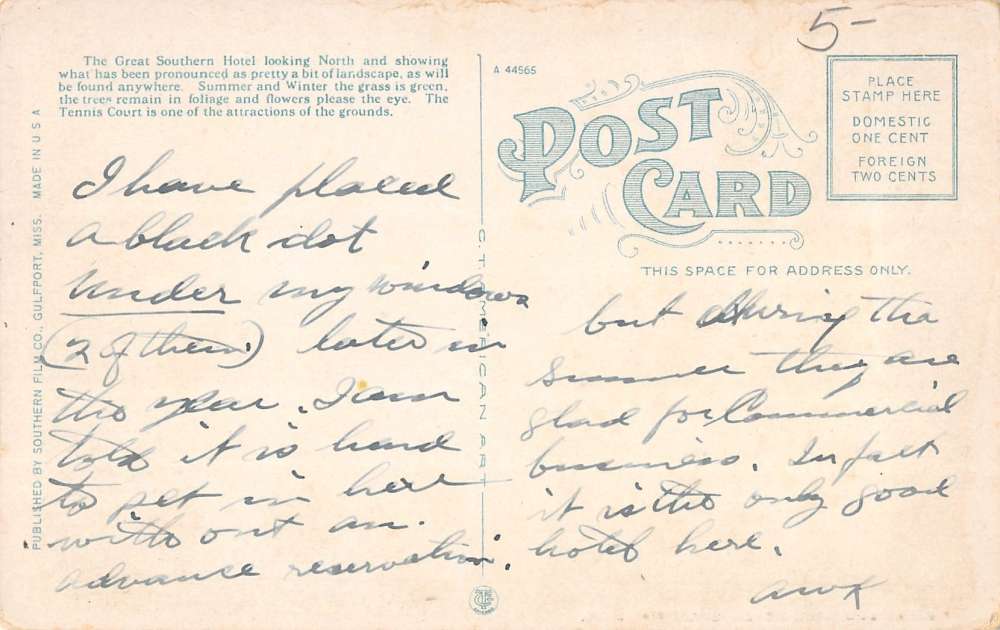 5-
The Great Southern Hotel looking North and showing
what has been pronounced as pretty a bit of landscape, as will
be found anywhere. Summer and Winter the grass is green,
the trees remain in foliage and flowers please the eye. The
Tennis Court is one of the attractions of the grounds.
A 44565
POST
CARD
PLACE
STAMP HERE
DOMESTIC
ONE CENT
FOREIGN
TWO CENTS
THIS SPACE FOR ADDRESS ONLY.
PUBLISHED BY SOUTHERN FILM CO., GULFPORT, MISS. MADE IN U S A
C. T. AMERICAN ART
I have placed
a black dot
under my windows
(2 of them) later in
the year, I am
told it is hard
to get in here
with out an
advance reservation.
but during the
summer they are
glad for Commercial
business. In fact
it is the only good
hotel here.
AWK